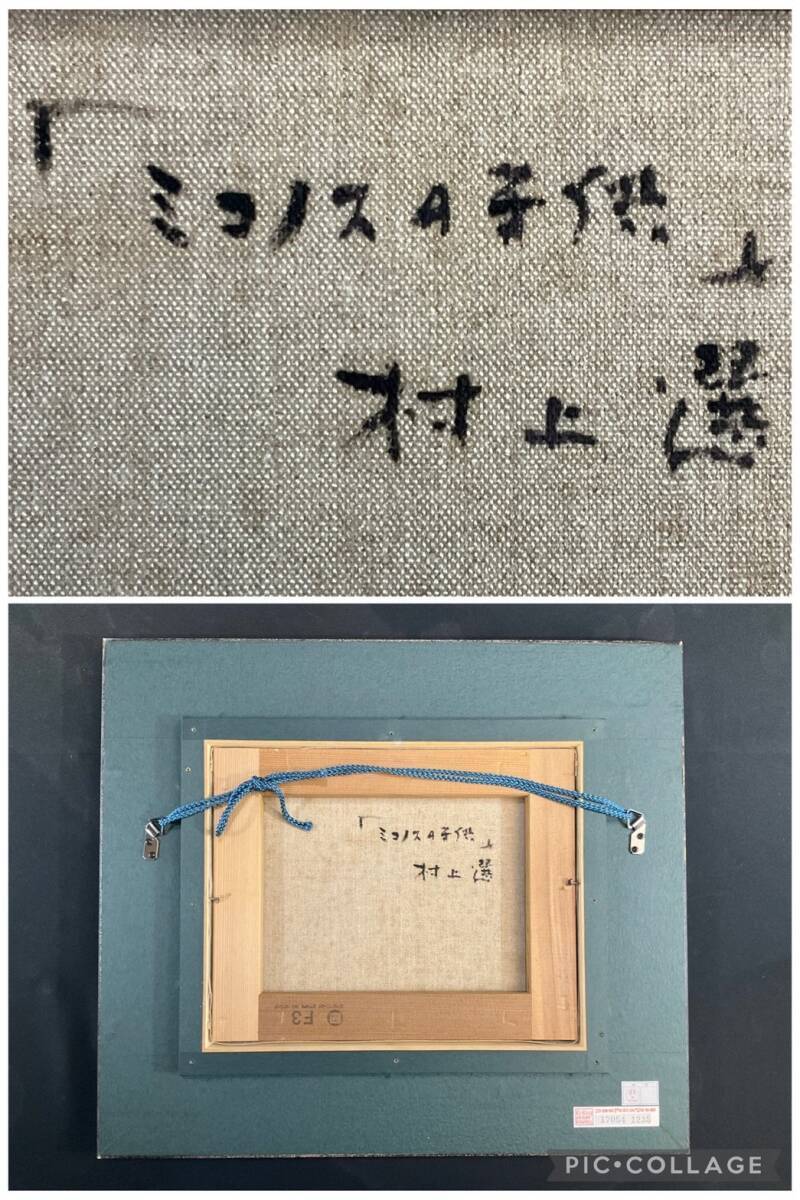 「ミコノスの子供」
村上選
「ミコノスの子供」
村上選
F3
17054 1235
PIC•COLLAGE